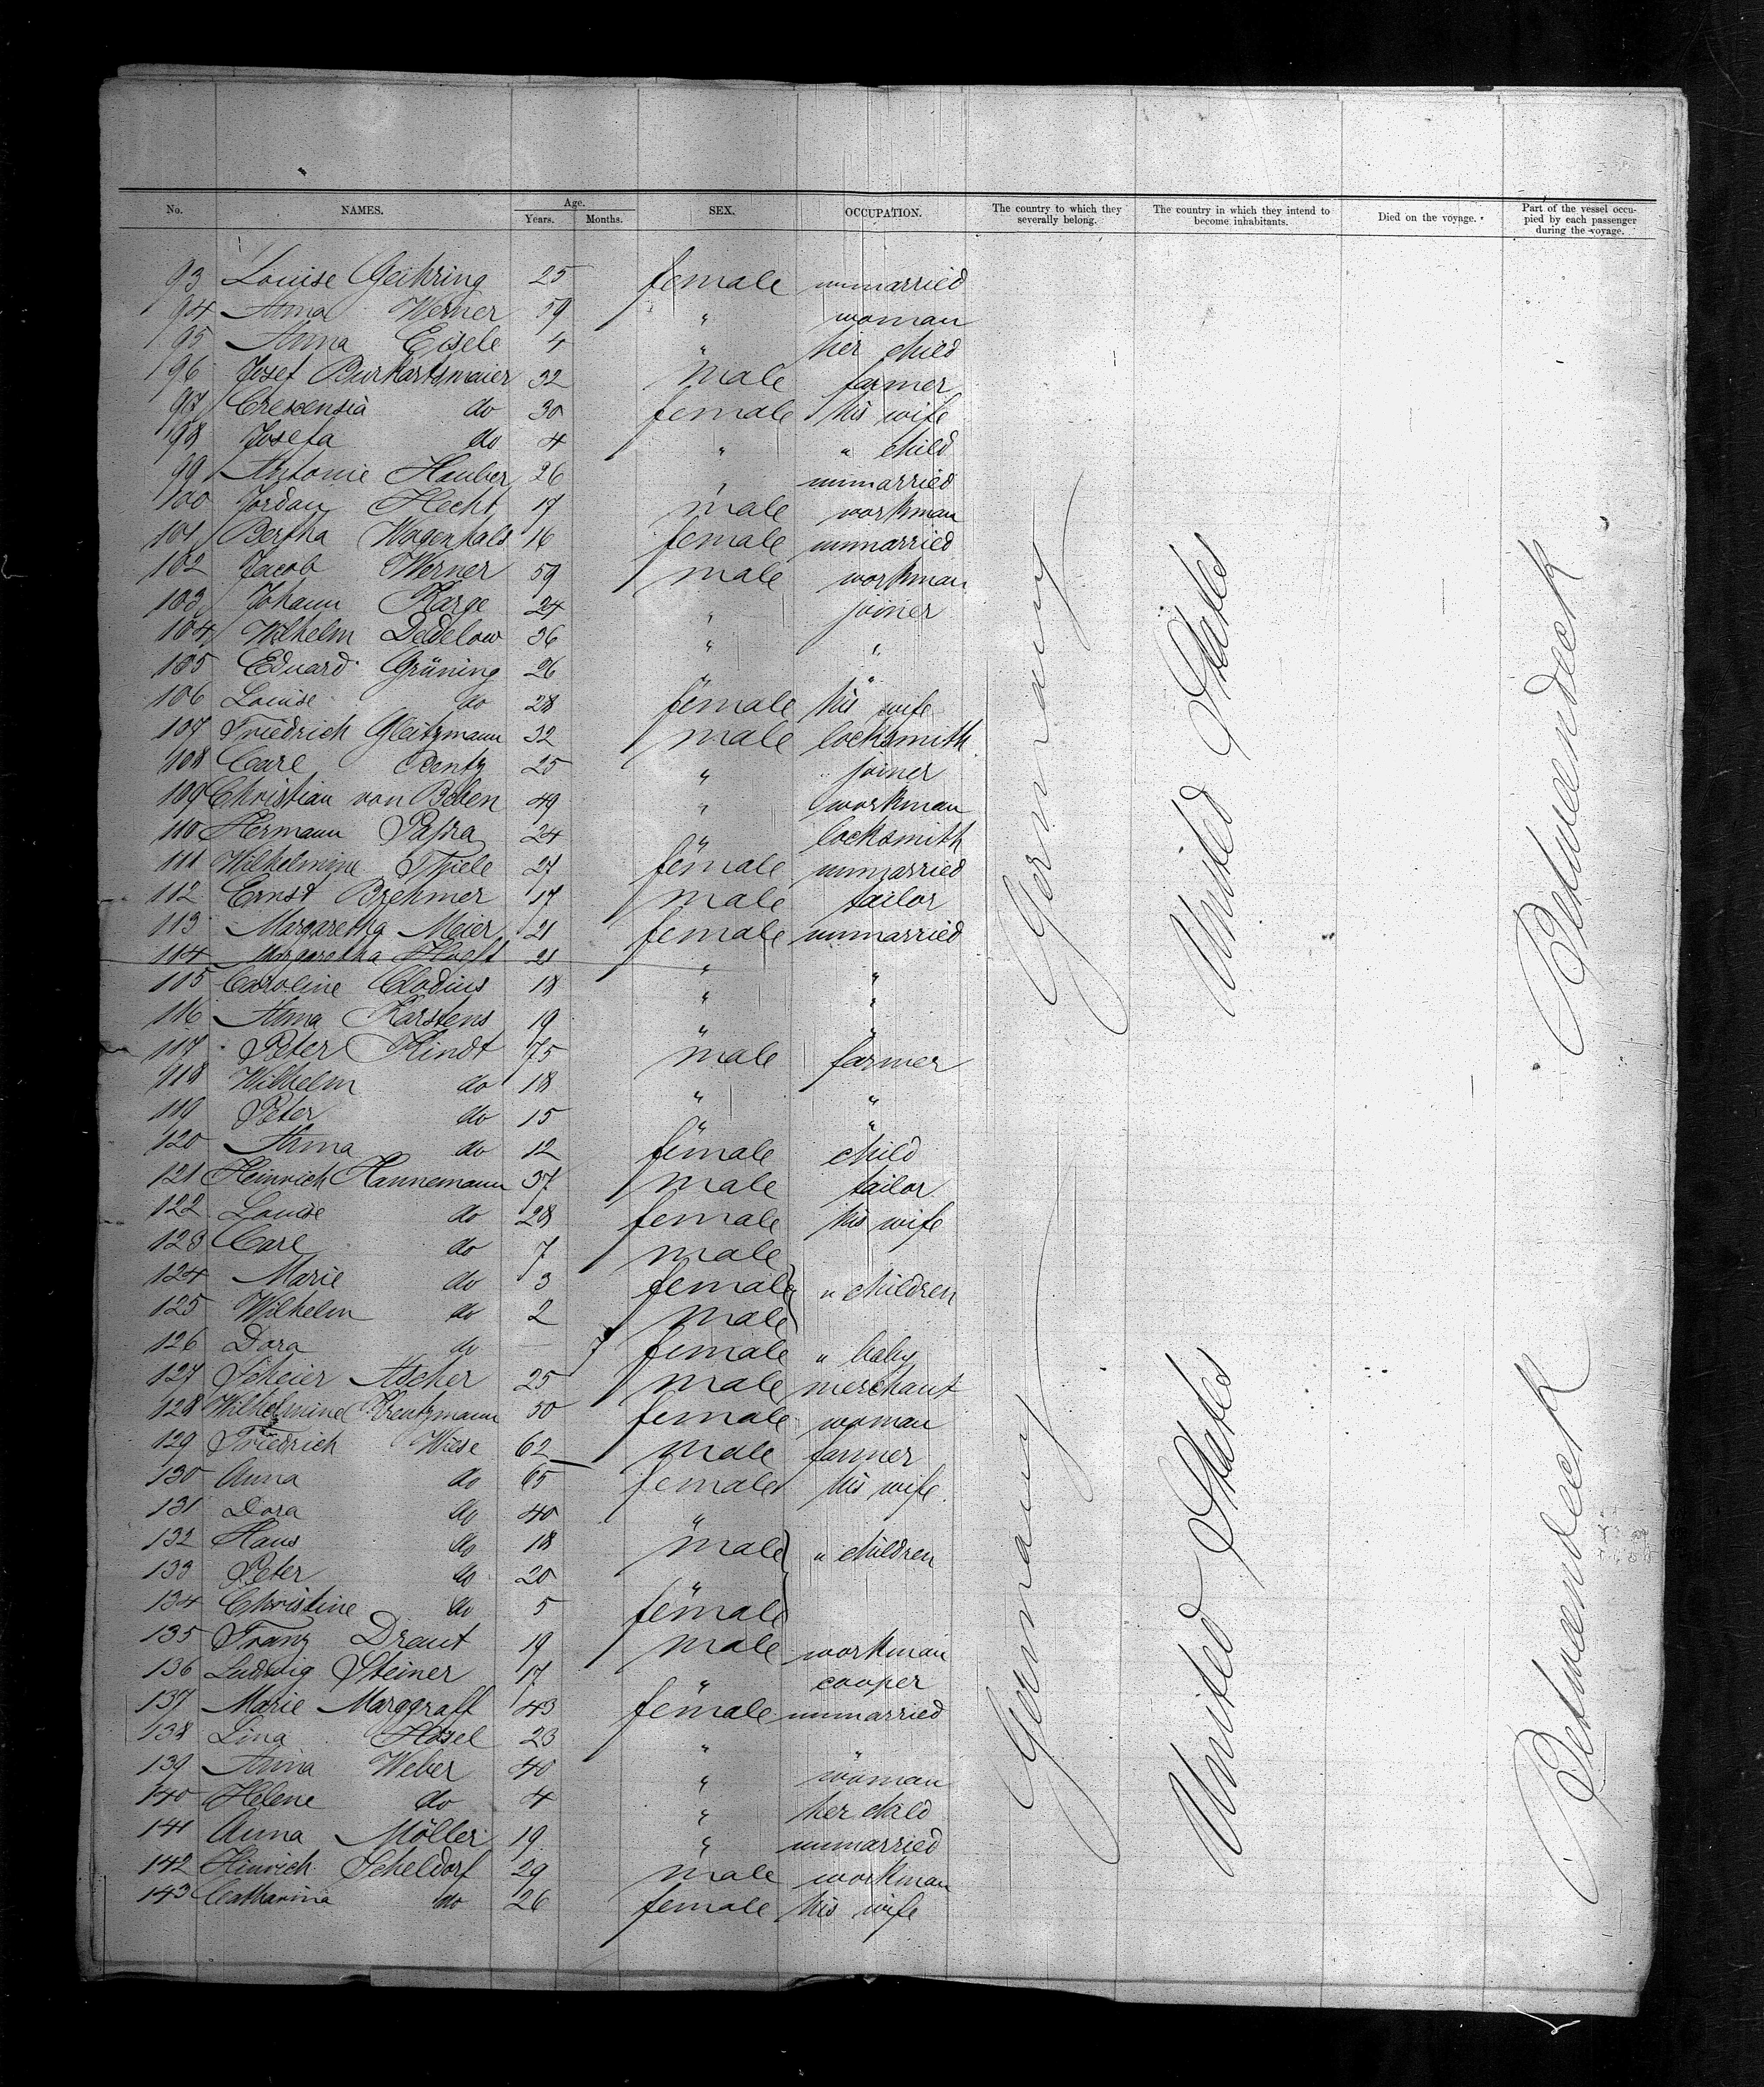 No. NAMES. Age. Years. Months. SEX. OCCUPATION. The country to which they severally belong. The country in which they intend to become inhabitants. Died on the voyage. Part of the vessel occupied by each passenger during the voyage.
93 Louise Geihring 25 female unmarried
94 Anna Werner 59 " woman
95 Anna Eisele 4 " her child
96 Josef Burkartsmaier 32 male farmer
97 Crescensia do 30 female his wife
98 Josefa do 4 " " child
99 Antonie Hauber 26 " unmarried
100 Jordan Hecht 17 male workman
101 Bertha Wagenhals 16 female unmarried
102 Jacob Werner 59 male workman
103 Johann Karge 24 " joiner
104 Wilhelm Dedelow 36 " "
105 Eduard Grüning 26 " "
106 Louise do 28 female his wife
107 Friedrich Gleitzmann 32 male locksmith
108 Carl 25 " joiner
109 Christian von 49 " workman
110 Hermann 24 " locksmith
111 Wilhelmine Thiele 27 female unmarried
112 Ernst Brehmer 17 male tailor
113 Margaretha Meier 21 female unmarried
114 Margaretha Hoeft 21 " "
115 Caroline Clodius 18 " "
116 Anna Karstens 19 " "
117 Peter Hindt 75 male farmer
118 Wilhelm do 18 " "
119 Peter do 15 " "
120 Anna do 12 female child
121 Heinrich Hannemann 37 male tailor
122 Louise do 28 female his wife
123 Carl do 7 male
124 Marie do 3 female " children
125 Wilhelm do 2 male
126 Dora do — 7 female " baby
127 Scheier Ascher 25 male merchant
128 Wilhelmine 50 female woman
129 Friedrich Wiese 62 male farmer
130 Anna do 65 female his wife
131 Dora do 40 "
132 Hans do 18 male " children
133 Peter do 20 "
134 Christine do 5 female
135 Franz Draut 19 male workman
136 Ludwig Steiner 17 " cooper
137 Marie Marggraff 43 female unmarried
138 Lina Hösel 23 " "
139 Anna Weber 40 " woman
140 Helene do 4 " her child
141 Anna Möller 19 " unmarried
142 Hinrich Scheldorf 29 male workman
143 Catharina do 26 female his wife
Germany
United States
Betweendeck
Germany
United States
Betweendeck